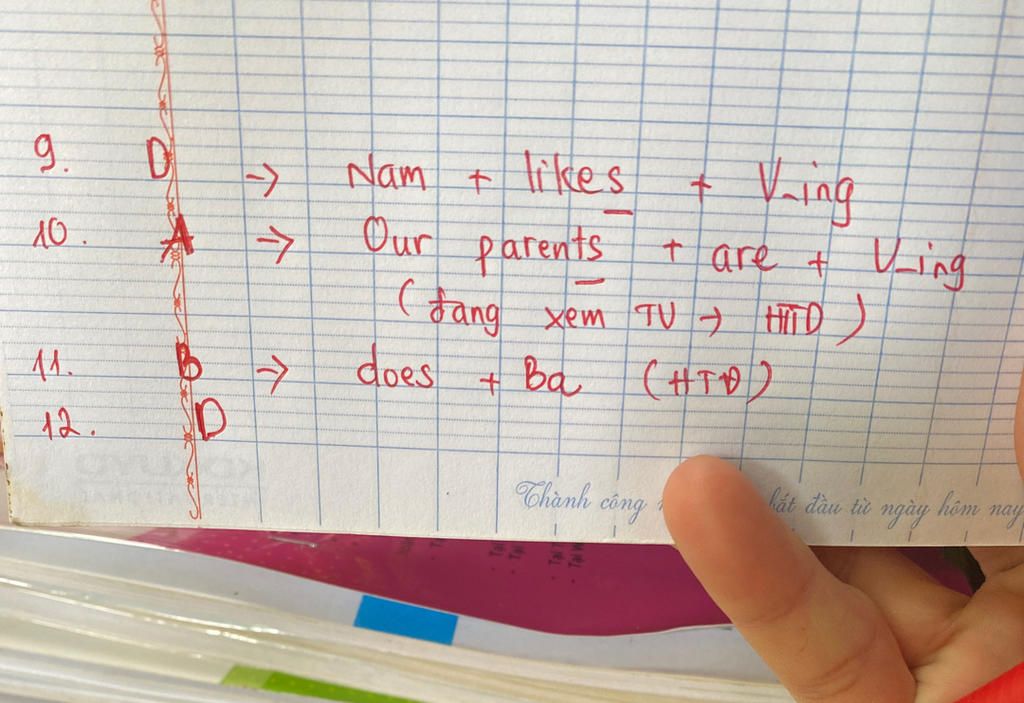 9. D → Nam + likes + V-ing
10. A → Our parents + are + V-ing
(đang xem TV → HTTD)
11. B → does + Ba (HTĐ)
12. D
Thành công bắt đầu từ ngày hôm nay